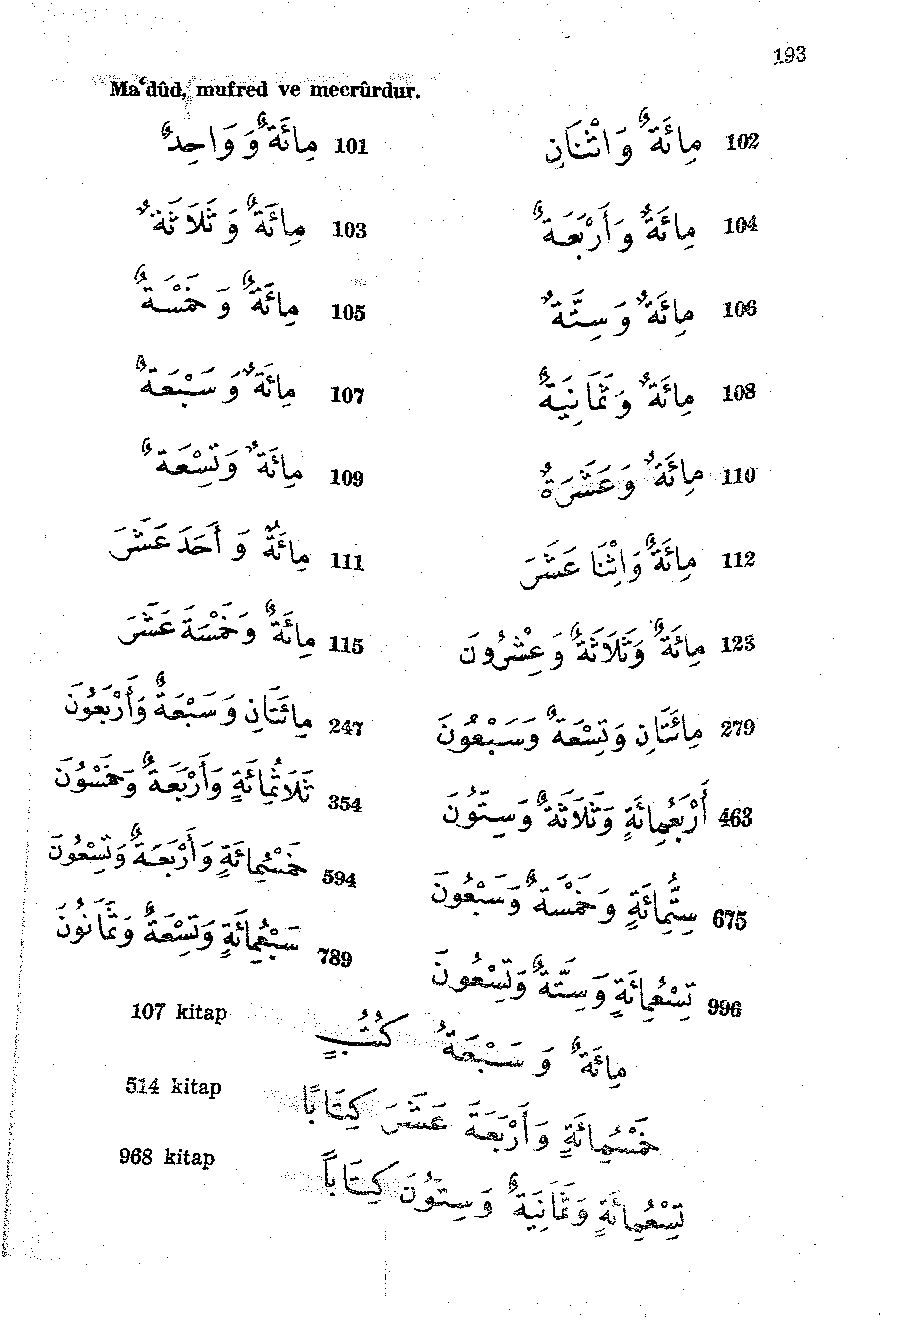 193
Ma‘dûd, mufred ve mecrûrdur.
101 مِائَةٌ وَ وَاحِدٌ
102 مِائَةٌ وَاثْنَانِ
103 مِائَةٌ وَ ثَلَاثَةٌ
104 مِائَةٌ وَأَرْبَعَةٌ
105 مِائَةٌ وَ خَمْسَةٌ
106 مِائَةٌ وَسِتَّةٌ
107 مِائَةٌ وَ سَبْعَةٌ
108 مِائَةٌ وَثَمَانِيَةٌ
109 مِائَةٌ وَتِسْعَةٌ
110 مِائَةٌ وَعَشَرَةٌ
111 مِائَةٌ وَ أَحَدَ عَشَرَ
112 مِائَةٌ وَاثْنَا عَشَرَ
115 مِائَةٌ وَخَمْسَةَ عَشَرَ
123 مِائَةٌ وَثَلَاثَةٌ وَعِشْرُونَ
247 مِائَتَانِ وَسَبْعَةٌ وَأَرْبَعُونَ
279 مِائَتَانِ وَتِسْعَةٌ وَسَبْعُونَ
354 ثَلَاثُمِائَةٍ وَأَرْبَعَةٌ وَخَمْسُونَ
463 أَرْبَعُمِائَةٍ وَثَلَاثَةٌ وَسِتُّونَ
594 خَمْسُمِائَةٍ وَأَرْبَعَةٌ وَتِسْعُونَ
675 سِتُّمِائَةٍ وَخَمْسَةٌ وَسَبْعُونَ
789 سَبْعُمِائَةٍ وَتِسْعَةٌ وَثَمَانُونَ
996 تِسْعُمِائَةٍ وَسِتَّةٌ وَتِسْعُونَ
107 kitap
مِائَةٌ وَ سَبْعَةُ كُتُبٍ
514 kitap
خَمْسُمِائَةٍ وَأَرْبَعَةَ عَشَرَ كِتَابًا
968 kitap
تِسْعُمِائَةٍ وَثَمَانِيَةٌ وَسِتُوُنَ كِتَابًا